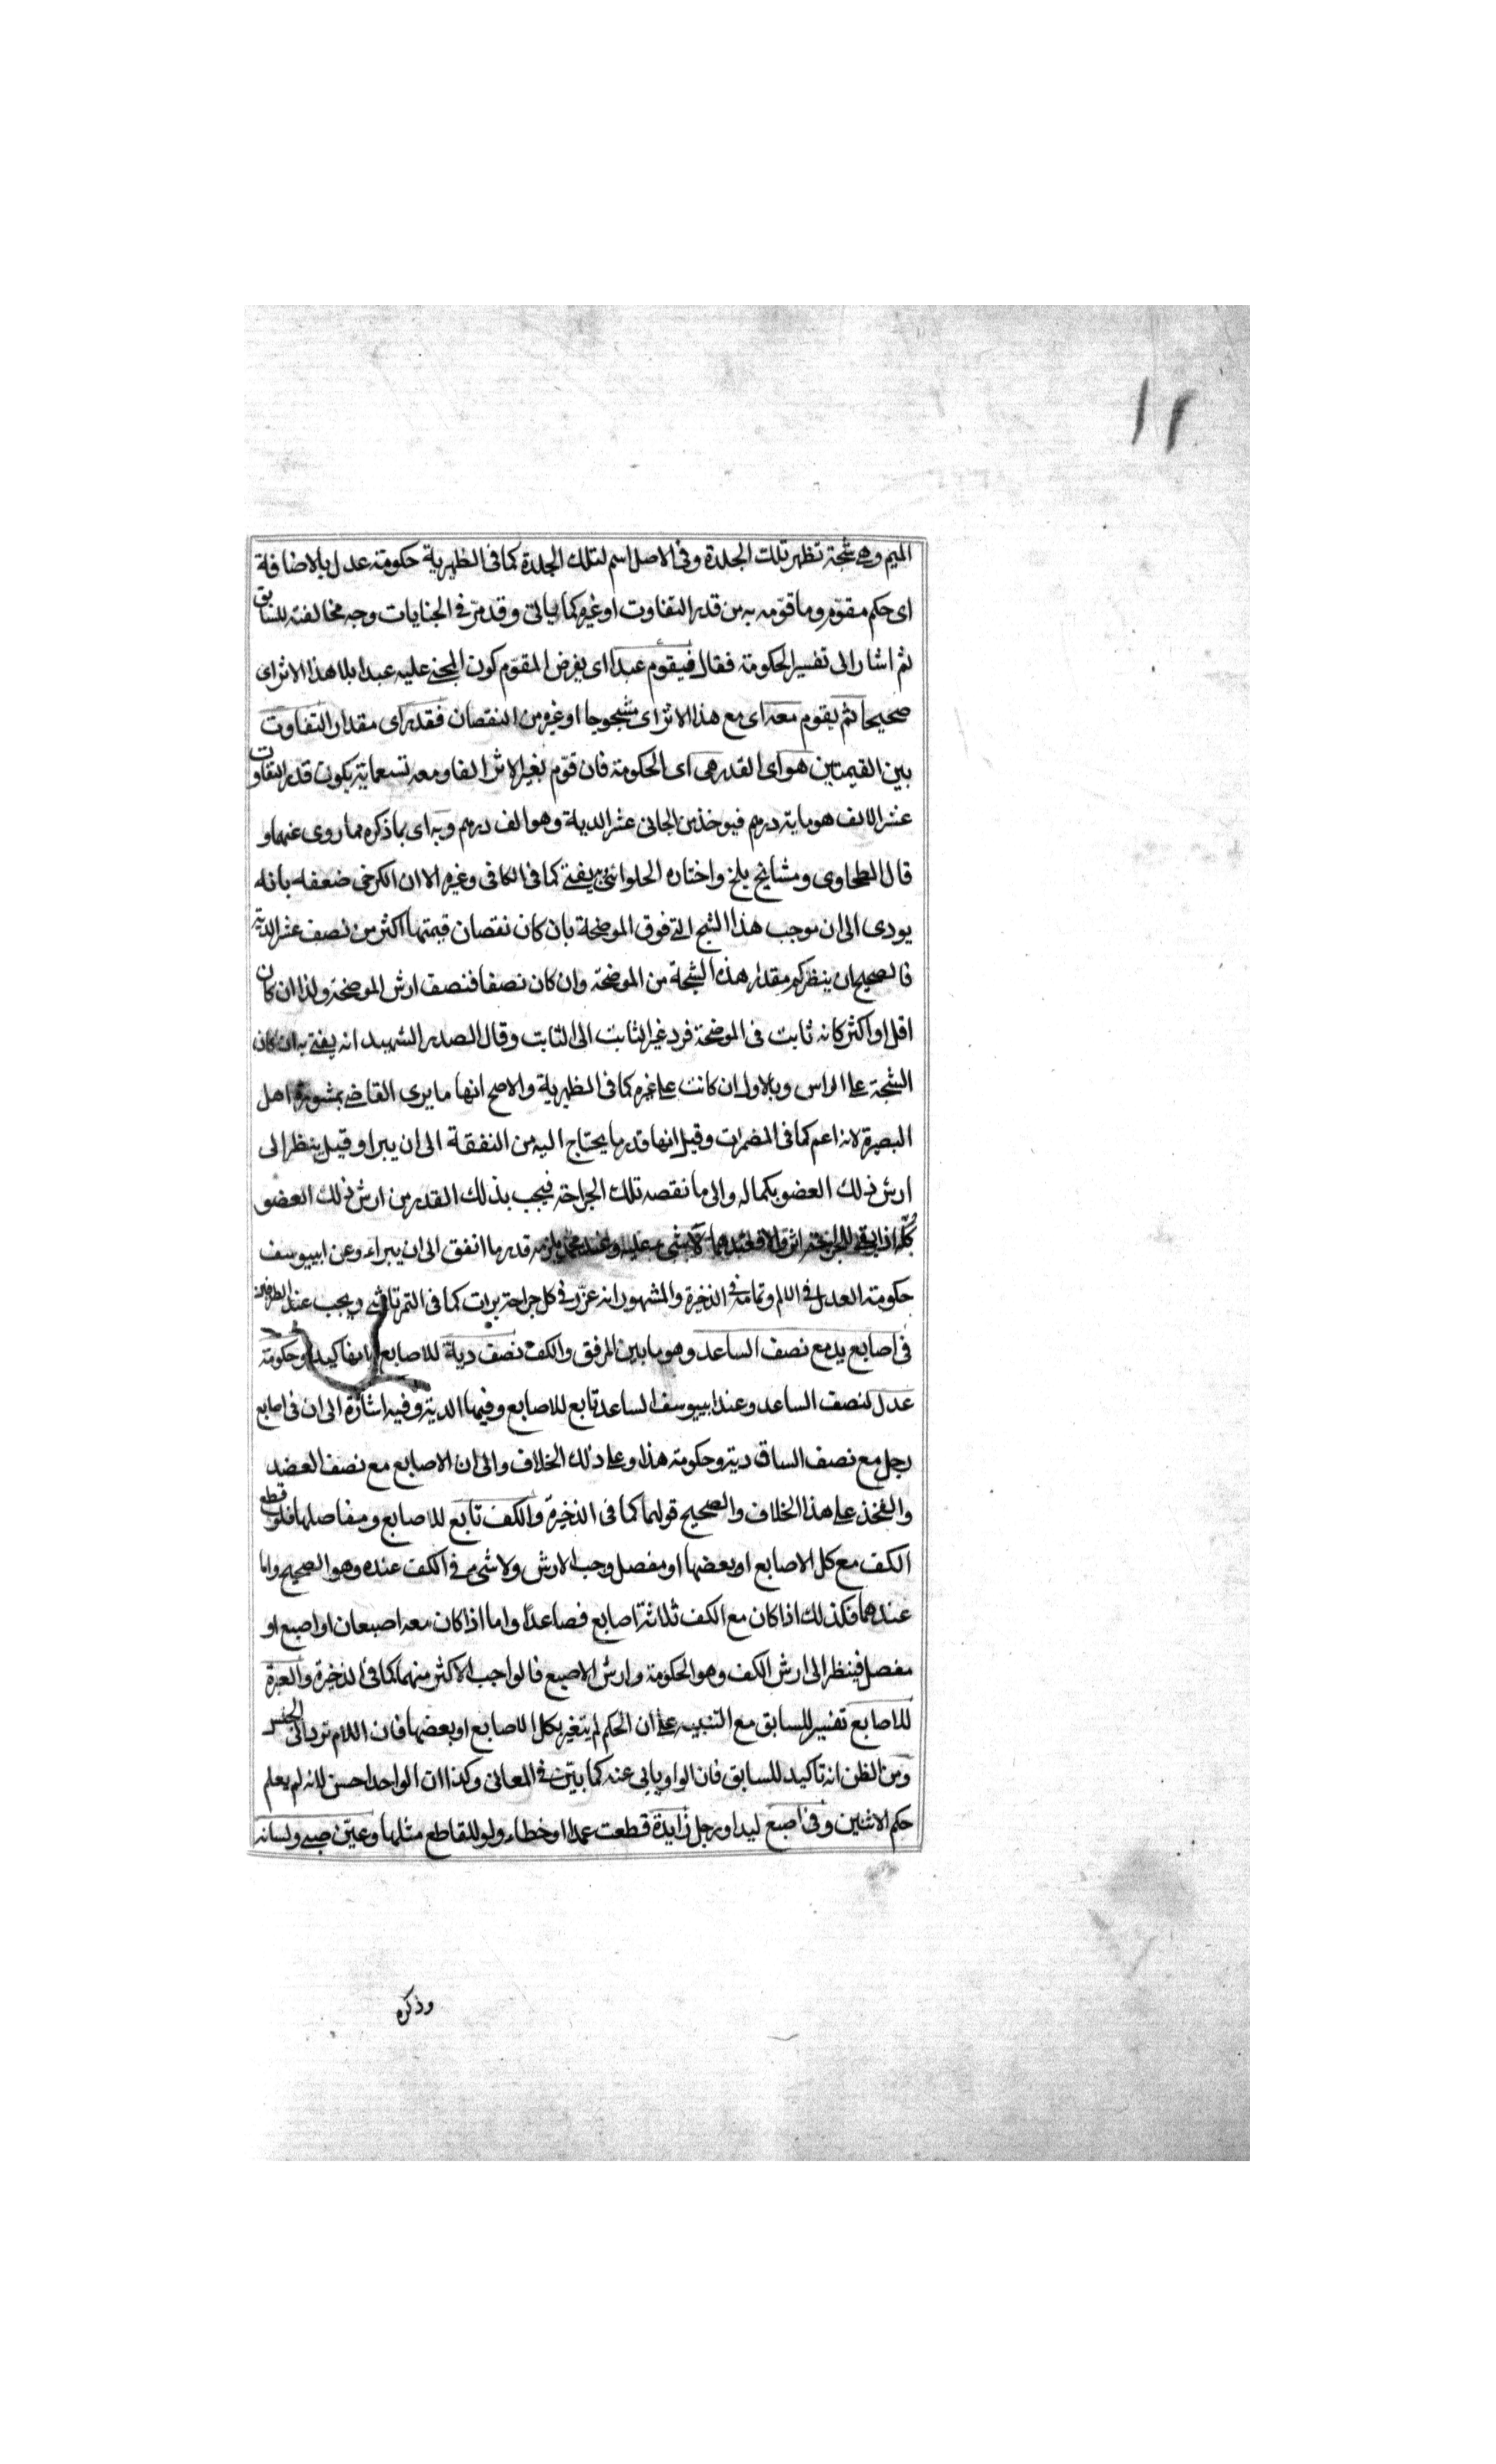 ١٢
الميم وهى شجة تظهر تلك الجلدة وفى الاصل اسم لتلك الجلدة كما فى الظهيرية حكومة عدل بالاضافة
اى حكم مقوّم وما قوّمه به من قدر التفاوت او غيره كما ياتى وقد مرّ فى الجنايات وجه مخالفته للسابق
ثم اشار الى تفسير الحكومة فقال فيقوم عبدا اى يفرض المقوّم كون المجنى عليه عبدا بلا هذا الاثر اى
صحيحا ثم يقوم معه اى مع هذا الاثر اى مشجوجا او غيره من النقصان فقدر اى مقدار التفاوت
بين القيمتين هو اى القدر هى اى الحكومة فان قوّم بغير الاثر الفا ومعه تسعماية يكون قدر التفاوت
عشر الالف هو ماية درهم فيوخذ من الجانى عشر الدية وهو الف درهم وبه اى بما ذكره مما روى عنهما و
قال الطحاوى ومشايخ بلخ واختاره الحلوائى به يفتى كما فى الكافى وغيره الا ان الكرخى ضعفه بانه
يودى الى ان موجب هذا الشج التى فوق الموضحة بان كان نقصان قيمتها اكثر من نصف عشر الدية
فالصحيح ان ينظر كم مقدار هذه الشجة من الموضحة وان كان نصفا فنصف ارش الموضحة ولذا ان كان
اقل او اكثر كانه ثابت فى الموضحة فرد غير الثابت الى الثابت وقال الصدر الشهيد انه يفتى به ان كان
الشجة على الراس وبالاول ان كانت على غيره كما فى الظهيرية والاصح انها ما يرى القاضى بمشورة اهل
البصيرة لانه اعم كما فى المضمرات وقيل انها قدر ما يحتاج اليه من النفقة الى ان يبرا وقيل ينظر الى
ارش ذلك العضو بكماله والى ما نقصه تلك الجراحة فيجب بذلك القدر من ارش ذلك العضو
كله اذا بقى للجراحة اثر والا فعندهما لا شىء عليه وعند محمد يلزمه قدر ما انفق الى ان يبراء وعن ابى يوسف
حكومة العدل فى الالم وتمامه فى الذخيرة والمشهور انه عزّر فى كل جراحة برات كما فى التمرتاشى ويجب عند الطرفين
فى اصابع يد مع نصف الساعد وهو ما بين المرفق والكف نصف دية للاصابع وحكومة
عدل لنصف الساعد وعند ابى يوسف الساعد تابع للاصابع وفيها الدية وفيه اشارة الى ان فى اصابع
رجل مع نصف الساق دية وحكومة هذا وعلى ذلك الخلاف والى ان الاصابع مع نصف العضد
والفخذ على هذا الخلاف والصحيح قولهما كما فى الذخيرة والكف تابع للاصابع ومفاصلها فلو قطع
الكف مع كل الاصابع او بعضها او مفصل وجب الارش ولا شىء فى الكف عنده وهو الصحيح واما
عندهما فكذلك اذا كان مع الكف ثلاثة اصابع فصاعدًا واما اذا كان معه اصبعان او اصبع او
مفصل فينظر الى ارش الكف وهو الحكومة وارش الاصبع فالواجب الاكثر منهما كما فى الذخيرة والعبرة
للاصابع تفسير للسابق مع التنبيه على ان الحكم لم يتغير بكل الاصابع او بعضها فان اللام ترد الى الجنس
ومن الظن انه تاكيد للسابق فان الواو يابى عنه كما بيّن فى المعانى وكذا ان الواحد احسن لانه لم يعلم
حكم الاثنين وفى اصبع ليد او رجل زايدة قطعت عمدا او خطاء ولو للقاطع مثلها وعين صبى ولسانه
وذكره